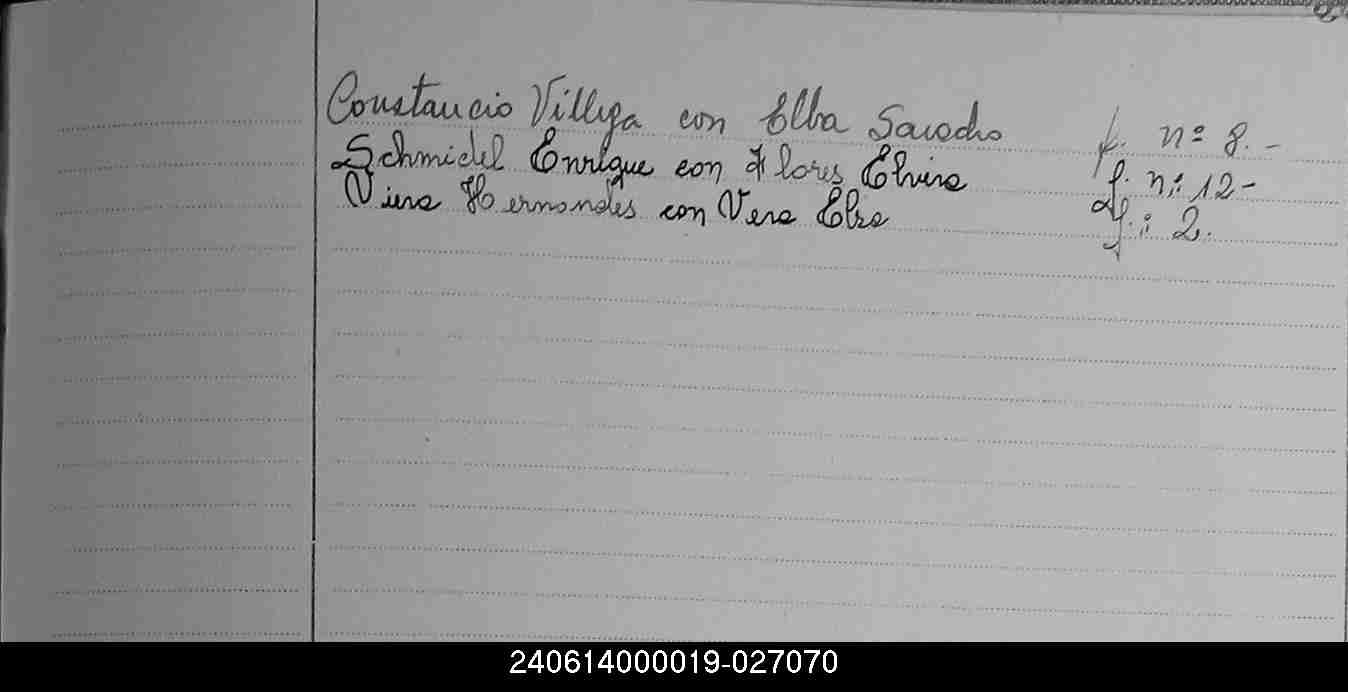 Constancio Villega con Elba Saucedo f. nº 8. -
Schmidel Enrique con Flores Elvira f. nº 12 -
Viera Hernandes con Vera Elsa f. : 2.
240614000019-027070